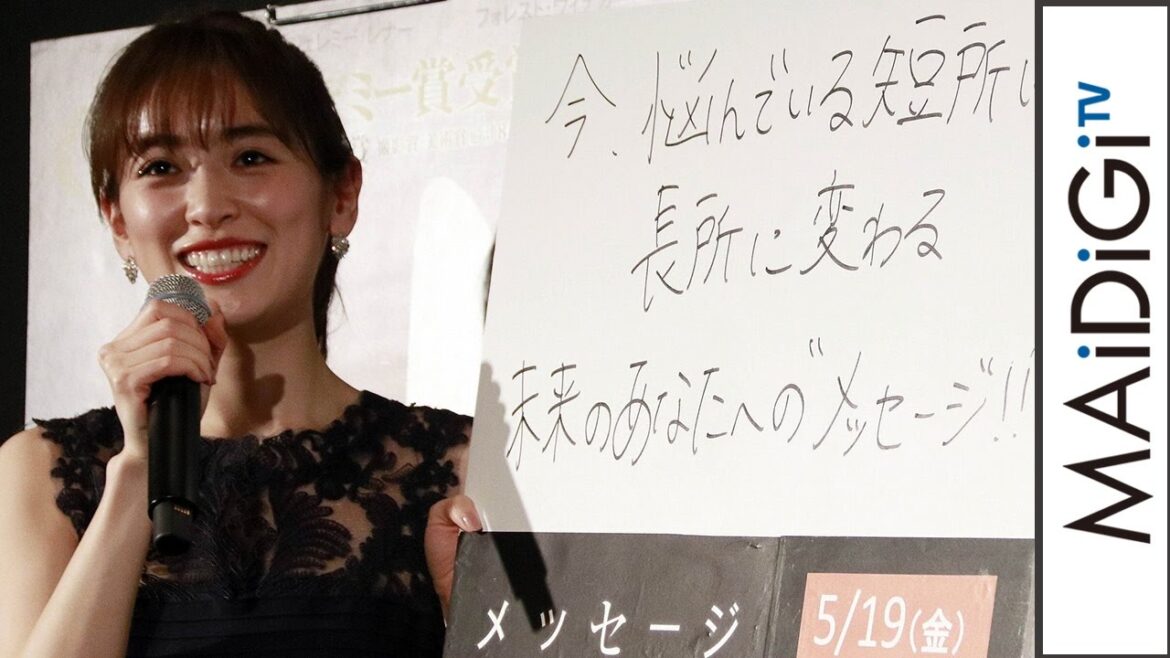 レミー・レナー
フォレスト・ウィテカー
ミー賞受賞
今、悩んでいる短所
長所に変わる
未来のあなたへの”メッセージ!!
メッセージ
5/19(金)
MAiDiGiTV